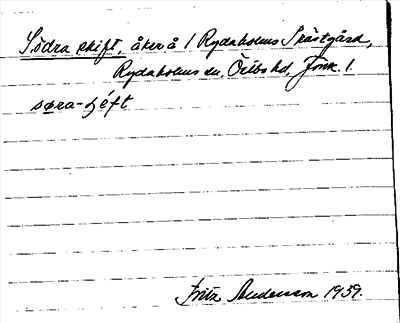 Södra skift, åker å 1 Rydaholms Prästgård,
Rydaholms sn, Östbo hd, Jönk. l.
søra-ʃéft
Fritz Andersson 1959.